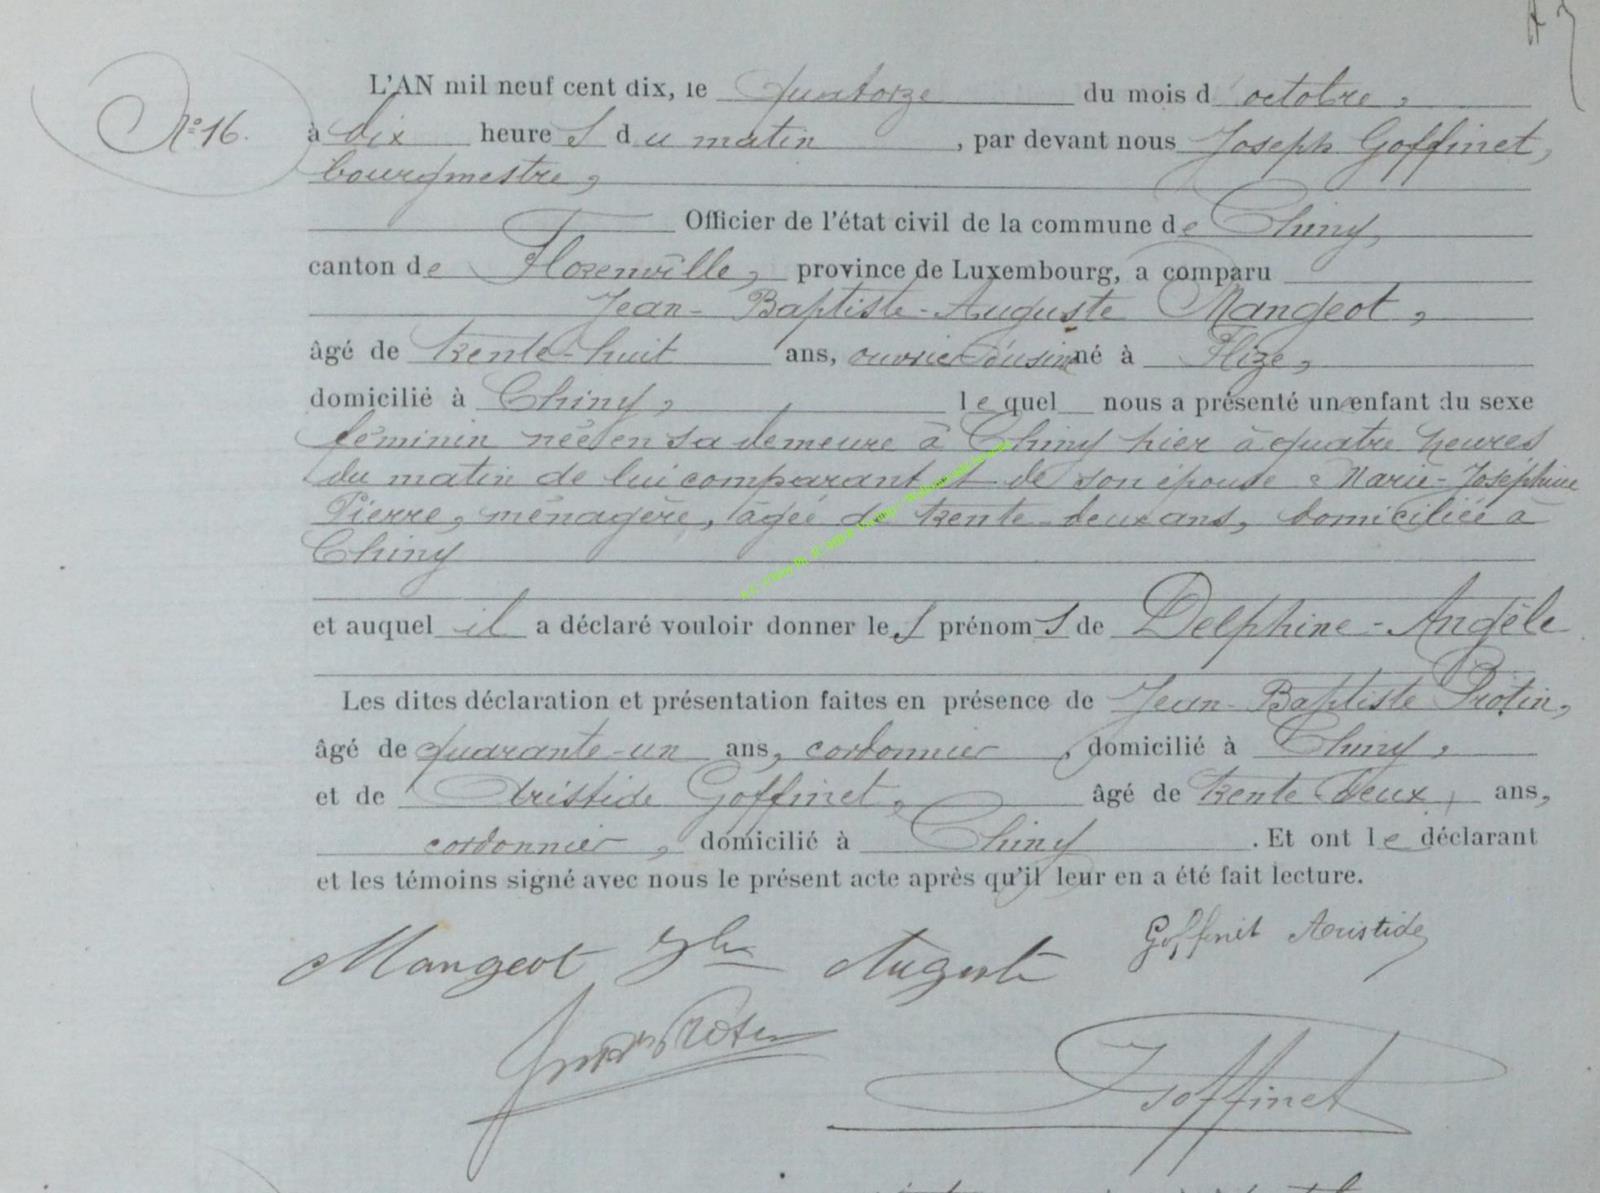 L'AN mil neuf cent dix, le quatorze du mois d'octobre,
N° 16. à dix heures du matin, par devant nous Joseph Goffinet,
bourgmestre,
Officier de l'état civil de la commune de Chiny,
canton de Florenville, province de Luxembourg, a comparu
Jean-Baptiste-Auguste Mangeot,
âgé de trente-huit ans, ouvrier d'usine né à Flize,
domicilié à Chiny, lequel nous a présenté un enfant du sexe
féminin née en sa demeure à Chiny hier à quatre heures
du matin de lui comparant et de son épouse Marie-Joséphine
Pierre, ménagère, âgée de trente-deux ans, domiciliée à
Chiny
et auquel il a déclaré vouloir donner les prénoms de Delphine-Angèle
Les dites déclaration et présentation faites en présence de Jean-Baptiste Protin,
âgé de quarante-un ans, cordonnier, domicilié à Chiny,
et de Aristide Goffinet, âgé de trente deux ans,
cordonnier, domicilié à Chiny. Et ont le déclarant
et les témoins signé avec nous le présent acte après qu'il leur en a été fait lecture.
Mangeot Auguste Goffinet Aristide
Protin
J Goffinet